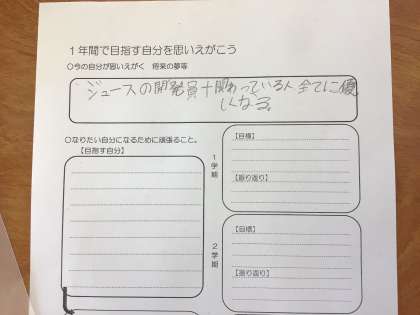 １年間で目指す自分を思いえがこう
○今の自分が思いえがく　将来の夢等
ジュースの開発員＋関わっている人全てに優
しくなる。
○なりたい自分になるために頑張ること。
【目指す自分】
１学期
【目標】
【振り返り】
２学期
【目標】
【振り返り】